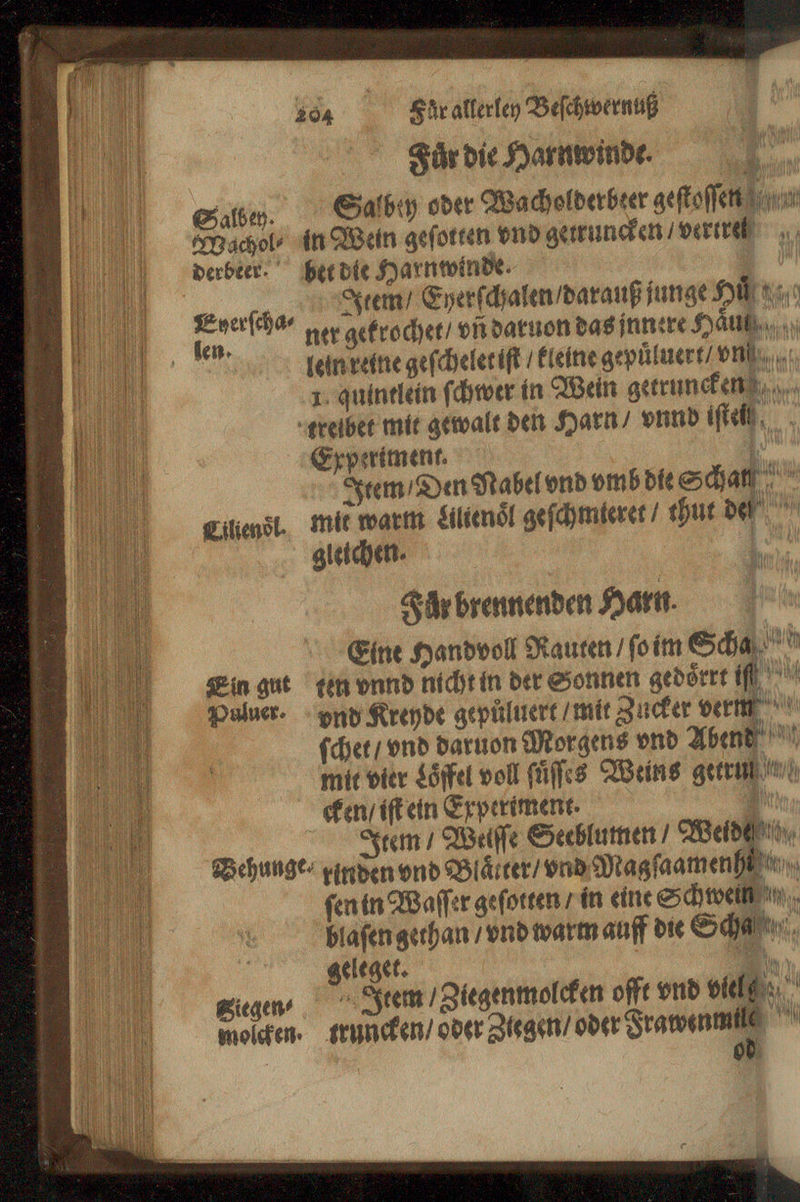 204 Für allerley Beſchwernuß
Für die Harnwinde.
Salbey. Salbey oder Wacholderbeer geſtoſſen
Wachol⸗ in Wein geſotten vnd getruncken / vertrei
derbeer. bet die Harnwinde.
Item / Eyerſchalen / darauß junge Hü
Eyerſcha⸗ ner gekrochet / vñ daruon das jnnere Häut
len. lein reine geſchelet iſt / kleine gepüluert / vnd
1. quintlein ſchwer in Wein getruncken
treibet mit gewalt den Harn / vnnd iſt ein
Experiment.
Item / Den Nabel vnd vmb die Scham
Lilienöl. mit warm Lilienöl geſchmieret / thut der
gleichen.
Für brennenden Harn.
Eine Handvoll Rauten / ſo im Scha
Ein gut ten vnnd nicht in der Sonnen gedörrt iſt
Puluer. vnd Kreyde gepüluert / mit Zucker vermi
ſchet / vnd daruon Morgens vnd Abends
mit vier Löffel voll ſüſſes Weins getrun
cken / iſt ein Experiment.
Item / Weiſſe Seeblumen / Weiden
Behunge⸗ rinden vnd Blätter / vnd Magſaamenhül
ſen in Waſſer geſotten / in eine Schwein
blaſen gethan / vnd warm auff die Scham
geleget.
Ziegen⸗ Item / Ziegenmolcken offt vnd viel ge
molcken. truncken / oder Ziegen / oder Frawenmilch
od